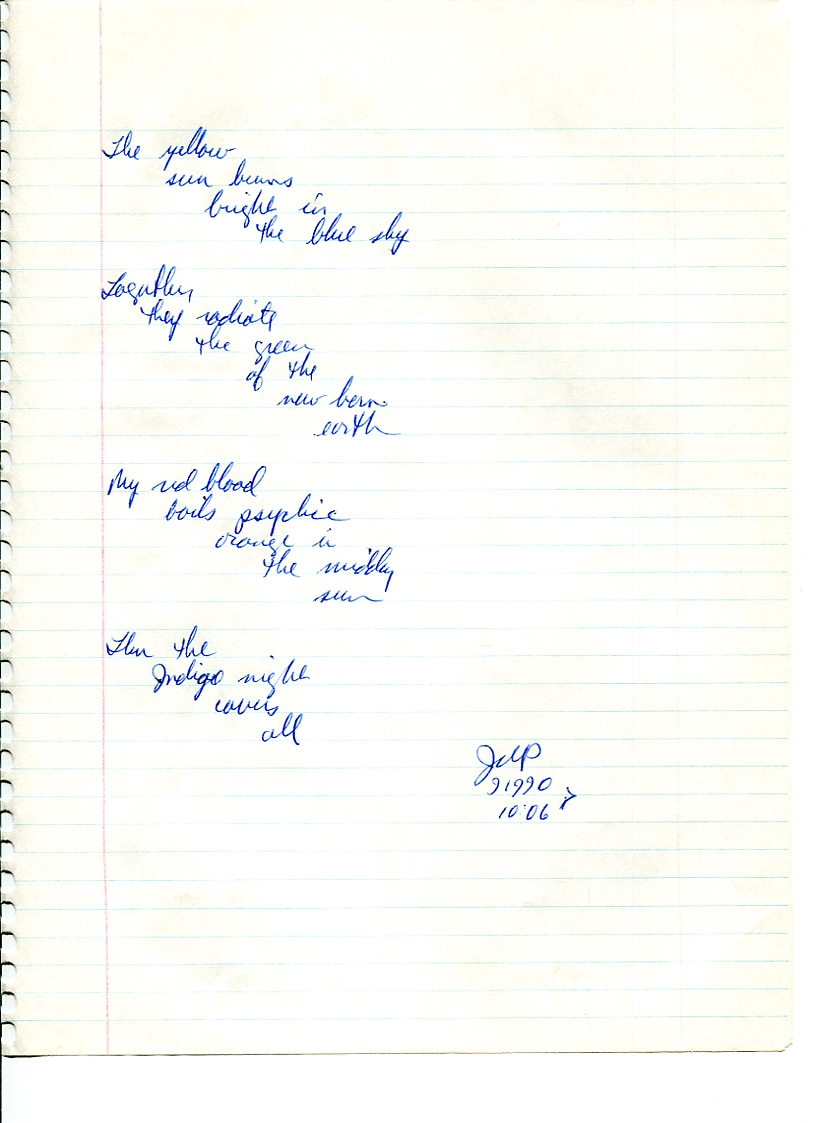 The yellow
sun burns
bright in
the blue sky
Together
they radiate
the green
of the
new born
earth
My red blood
boils psychic
orange in
the midday
sun
Then the
Indigo night
covers
all
91990
10:06